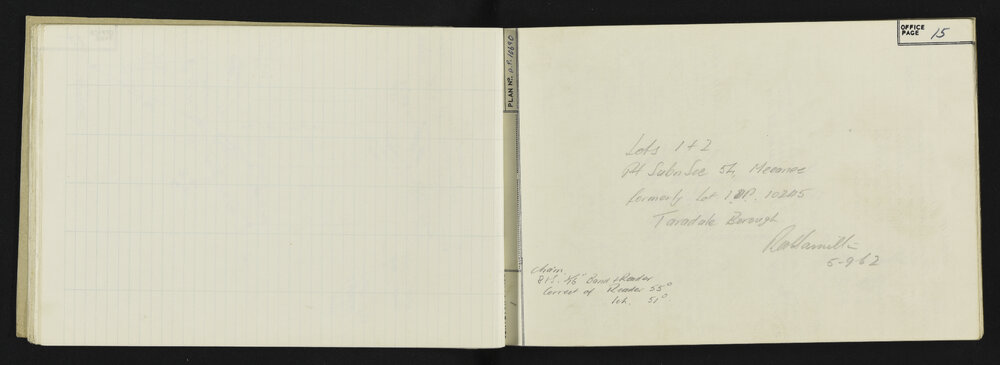 PLAN No. D.P. 10690
OFFICE
PAGE 15
Lots 1 + 2
Pt Subn Sec 54, Meeanee
formerly Lot 1 DP. 10245
Taradale Borough
6-9-62
Chain
Band & Reader
Correct at Reader 55°
1ch. 51°